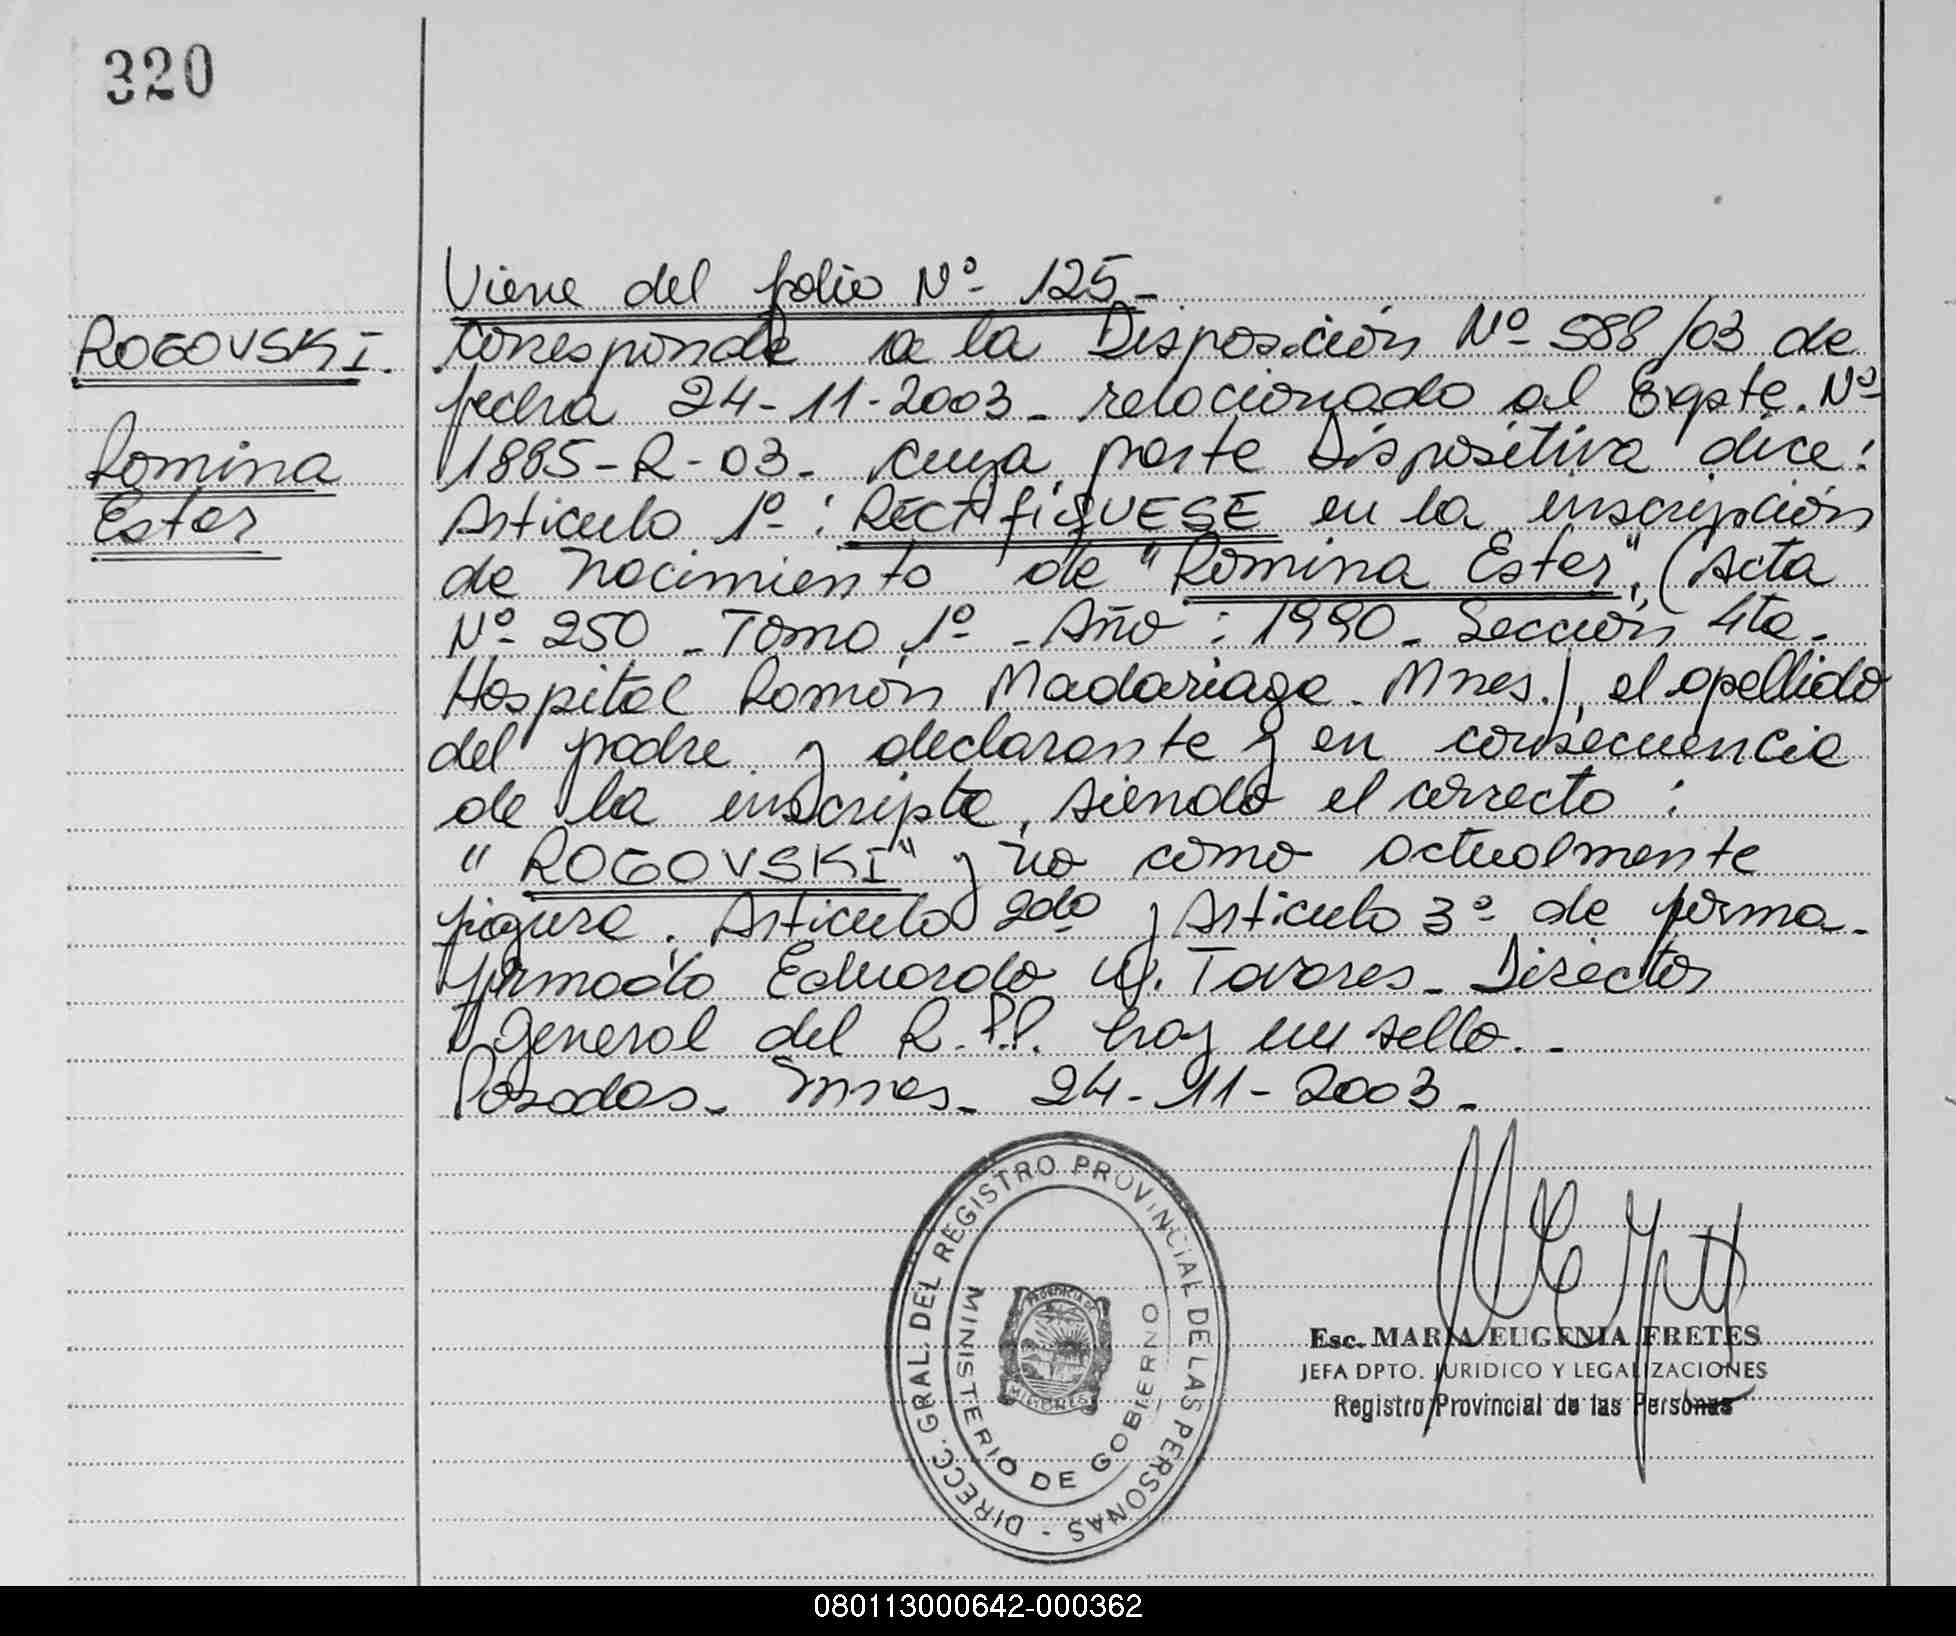 320
Viene del folio Nº 125-
ROGOVSKI.
Romina
Ester
Corresponde a la Disposición Nº 588/03 de
fecha 24-11-2003- relacionado al Expte. Nº
1885-R-03- cuya parte Dispositiva dice:
Articulo 1º: RECTIFIQUESE en la inscripción
de nacimiento de "Romina Ester", (Acta
Nº 250 - Tomo 1º - Año: 1990- Sección 4ta-
Hospital Ramón Madariaga. Mnes.), el apellido
del padre y declarante y en consecuencia
de la inscripta, siendo el correcto:
"ROGOVSKI" y no como actualmente
figura. Articulo 2do y Articulo 3º de forma-
firmado Eduardo W. Tavares- Director
General del R.P.P. hay un sello.-
Posadas- Mnes- 24-11-2003-
DIRECC. GRAL. DEL REGISTRO PROVINCIAL DE LAS PERSONAS -
MINISTERIO DE GOBIERNO
PROVINCIA DE
MISIONES
Esc. MARIA EUGENIA FRETES
JEFA DPTO. JURIDICO Y LEGALIZACIONES
Registro Provincial de las Personas
080113000642-000362